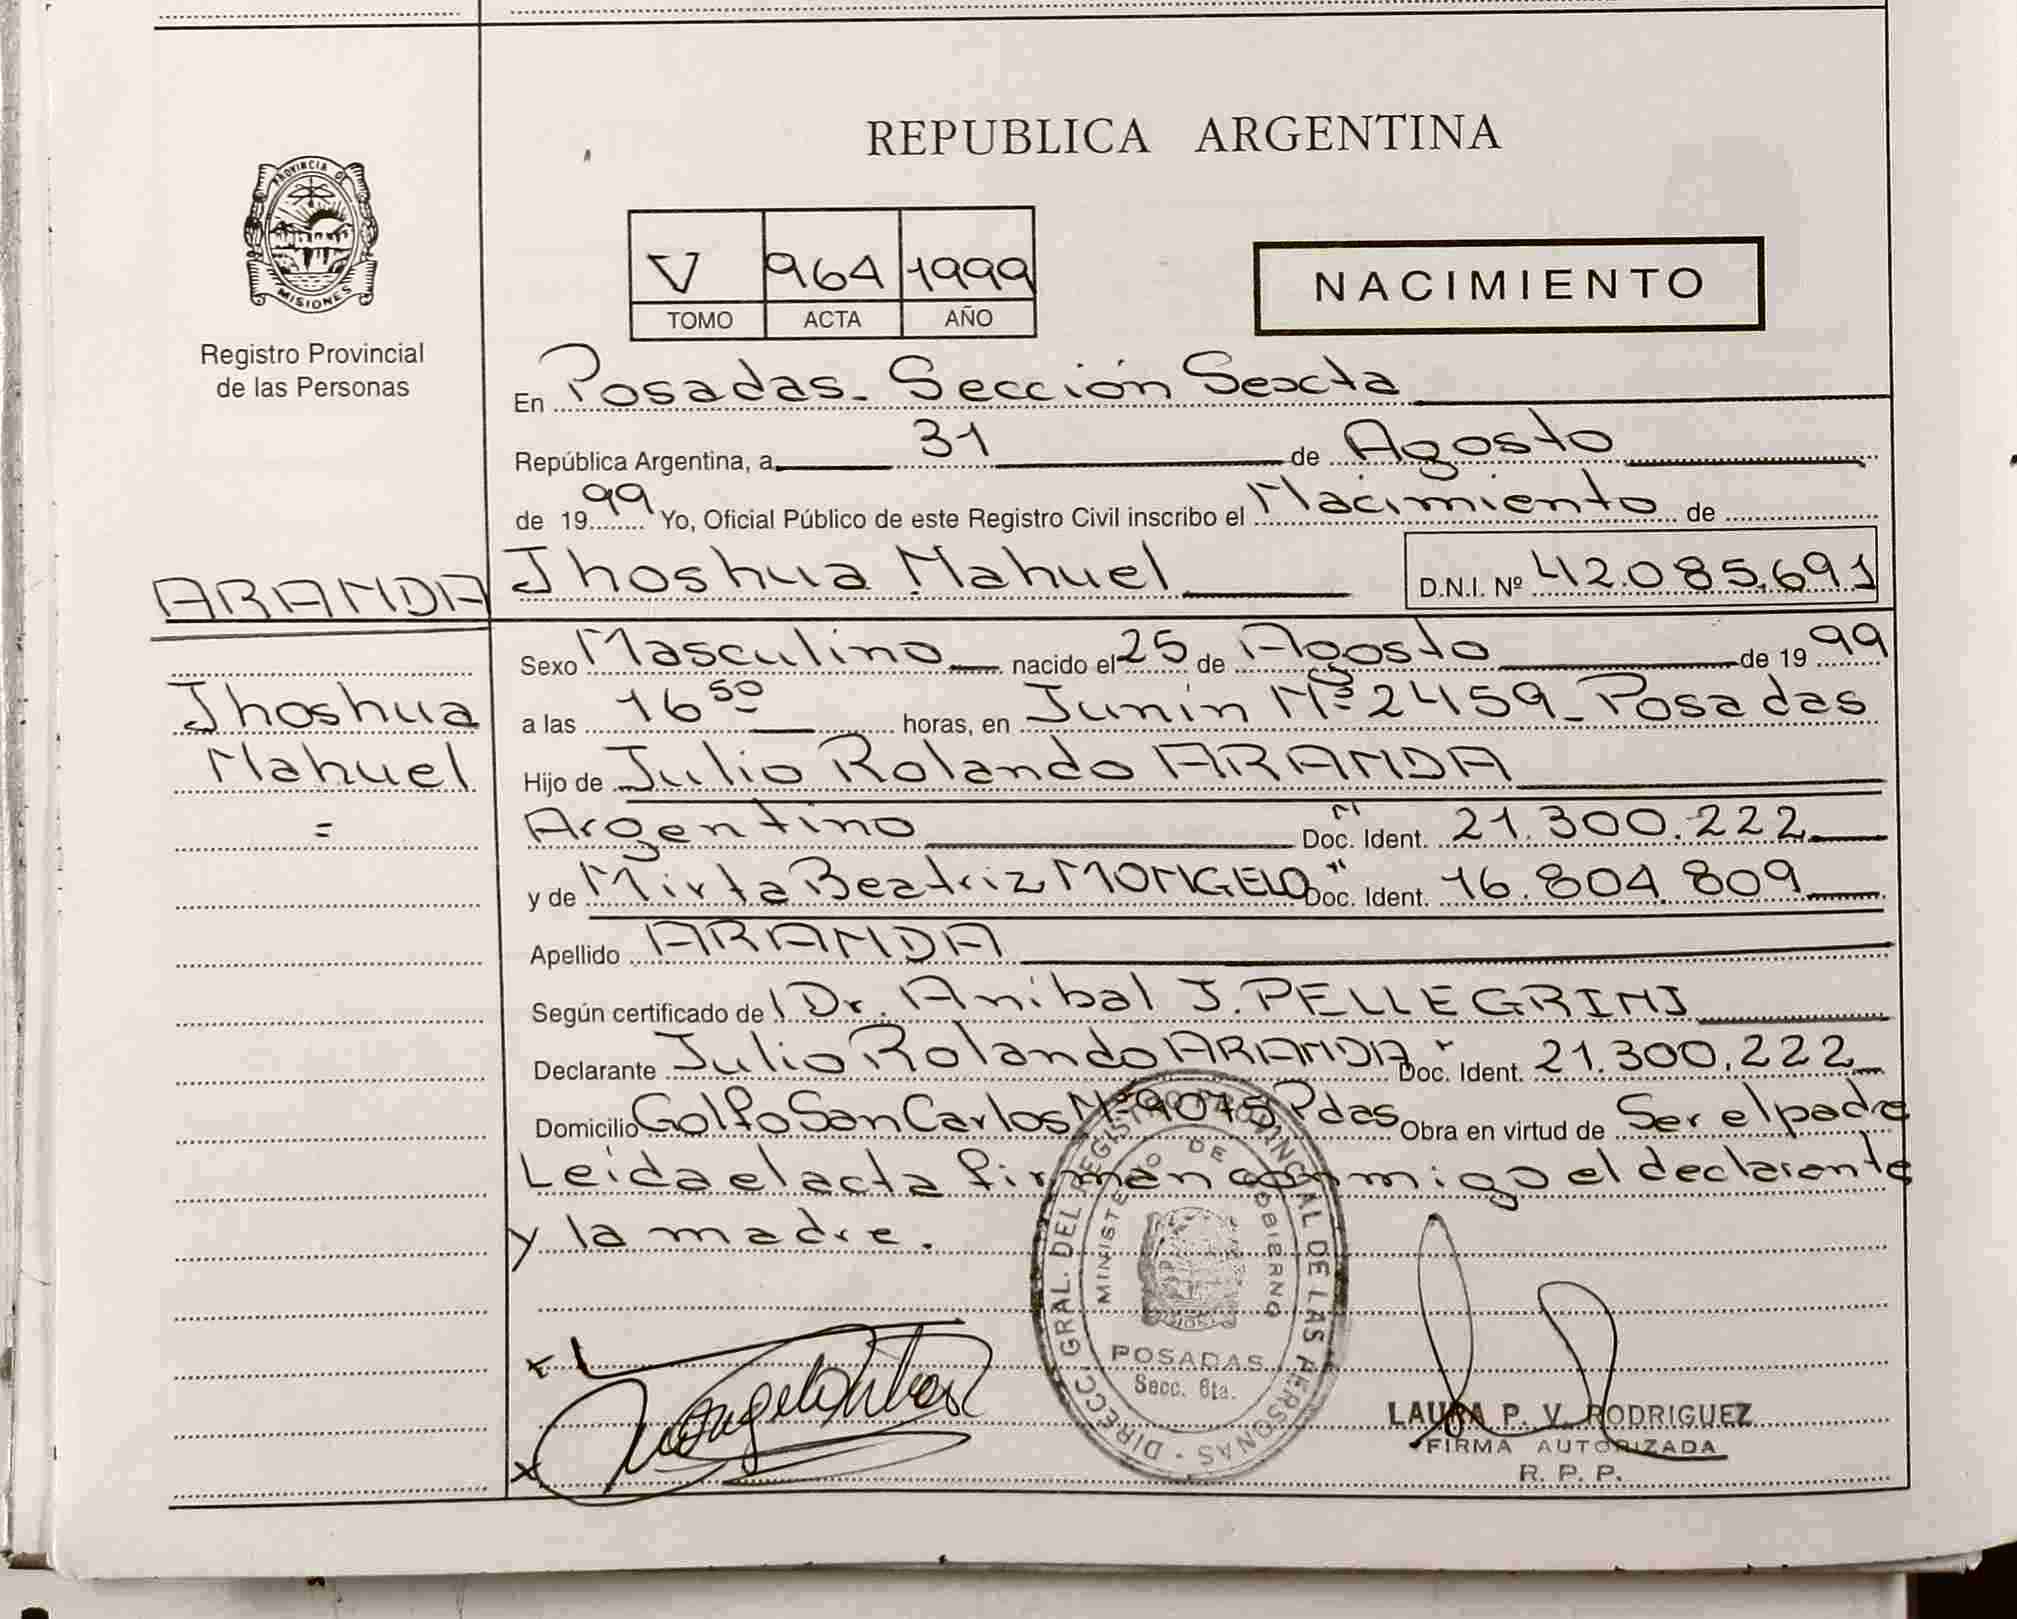 REPUBLICA ARGENTINA
PROVINCIA DE
MISIONES
Registro Provincial
de las Personas
V 964 1999
TOMO ACTA AÑO
NACIMIENTO
En Posadas. Sección Sexta
República Argentina, a 31 de Agosto
de 1999 Yo, Oficial Público de este Registro Civil inscribo el Nacimiento de
ARANDA Jhoshua Nahuel D.N.I. Nº 42.085.691
Sexo Masculino nacido el 25 de Agosto de 1999
Jhoshua
a las 16 50 horas, en Junín Nº 2459 - Posadas
Nahuel
Hijo de Julio Rolando ARANDA
=
Argentino Doc. Ident. 21.300.222
y de Mirta Beatriz MONGELO Doc. Ident. 16.804.809
Apellido ARANDA
Según certificado del Dr. Anibal J. PELLEGRINI
Declarante Julio Rolando ARANDA Doc. Ident. 21.300.222
Domicilio Golfo San Carlos Nº 9075 Pdas Obra en virtud de Ser el padre
Leida el acta firman conmigo el declarante
y la madre.
DIRECC. GRAL. DEL REGISTRO PROVINCIAL DE LAS PERSONAS
MINISTERIO DE GOBIERNO
MISIONES
POSADAS
Secc. 6ta.
LAURA P. V. RODRIGUEZ
FIRMA AUTORIZADA
R. P. P.